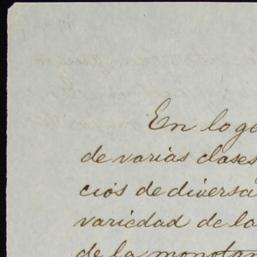 En lo ge
de varias clases
cios de diversa
variedad de la
de la monoton